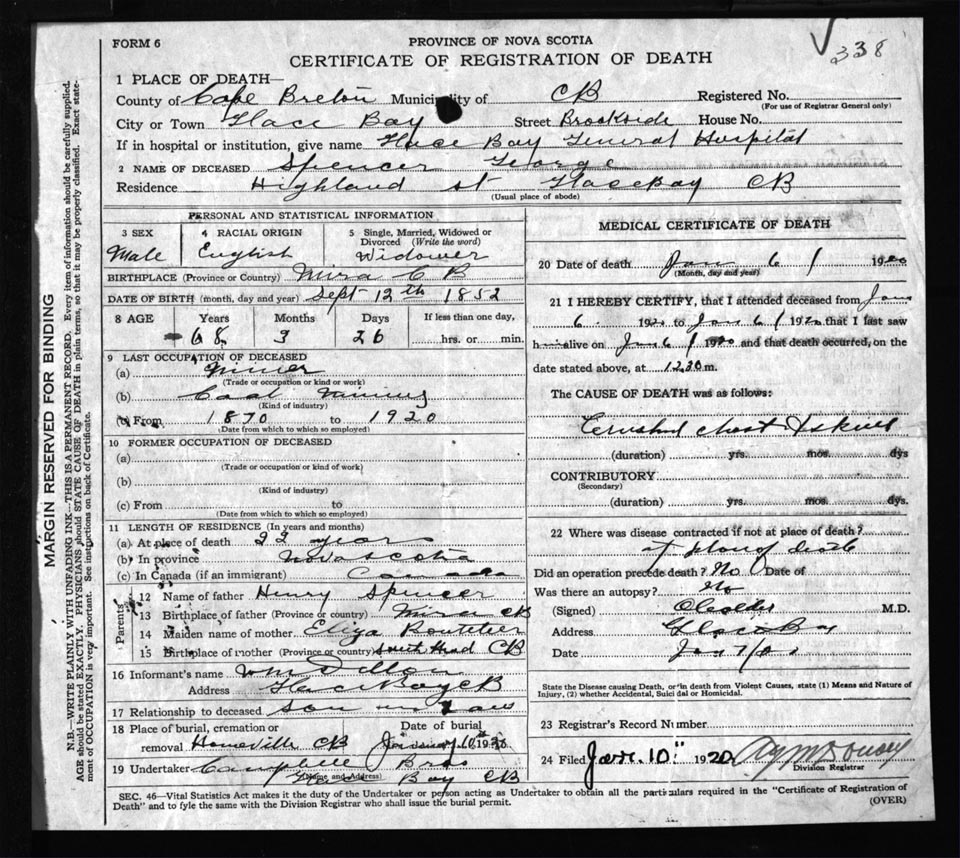 338
FORM 6
PROVINCE OF NOVA SCOTIA
CERTIFICATE OF REGISTRATION OF DEATH
1 PLACE OF DEATH—
County of Cape Breton Municipality of CB Registered No.
(For use of Registrar General only)
City or Town Glace Bay Street Brookside House No.
If in hospital or institution, give name Glace Bay General Hospital
2 NAME OF DECEASED Spencer George
Residence Highland St Glace Bay CB
(Usual place of abode)
PERSONAL AND STATISTICAL INFORMATION
3 SEX 4 RACIAL ORIGIN 5 Single, Married, Widowed or Divorced (Write the word)
Male English Widower
BIRTHPLACE (Province or Country) Mira CB
DATE OF BIRTH (month, day and year) Sept 12th 1852
8 AGE Years Months Days If less than one day,
68 3 26 hrs. or min.
9 LAST OCCUPATION OF DECEASED
(a) Miner
(Trade or occupation or kind or work)
(b) Coal Mining
(Kind of industry)
(c) From 1870 to 1920
(Date from which to which so employed)
10 FORMER OCCUPATION OF DECEASED
(a)
(Trade or occupation or kind of work)
(b)
(Kind of industry)
(c) From to
(Date from which to which so employed)
11 LENGTH OF RESIDENCE (In years and months)
(a) At place of death 22 years
(b) In province Nova Scotia
(c) In Canada (if an immigrant) Canada
Parents
12 Name of father Henry Spencer
13 Birthplace of father (Province or country) Mira CB
14 Maiden name of mother Eliza
15 Birthplace of mother (Province or country) South Head CB
16 Informant's name Wm Dillon
Address Glace Bay CB
17 Relationship to deceased Son in Law
18 Place of burial, cremation or removal Homeville CB
Date of burial 1920
19 Undertaker Campbell Bros
(Name and Address)
Glace Bay CB
MEDICAL CERTIFICATE OF DEATH
20 Date of death Jan 6 1920
(Month, day and year)
21 I HEREBY CERTIFY, that I attended deceased from Jan
6 1920 to Jan 6 1920 that I last saw
h alive on Jan 6 1920 and that death occurred, on the
date stated above, at 12.30 m.
The CAUSE OF DEATH was as follows:
Crushed chest & skull
(duration) yrs. mos. dys
CONTRIBUTORY
(Secondary)
(duration) yrs. mos. dys.
22 Where was disease contracted if not at place of death?
at place of death
Did an operation precede death? No Date of
Was there an autopsy? No
(Signed) M.D.
Address Glace Bay
Date Jan 7
State the Disease causing Death, or in death from Violent Causes, state (1) Means and Nature of
Injury, (2) whether Accidental, Suicidal or Homicidal.
23 Registrar's Record Number
24 Filed Jan. 10" 1920
Division Registrar
SEC. 46—Vital Statistics Act makes it the duty of the Undertaker or person acting as Undertaker to obtain all the particulars required in the "Certificate of Registration of
Death" and to fyle the same with the Division Registrar who shall issue the burial permit.
(OVER)
MARGIN RESERVED FOR BINDING
N.B.—WRITE PLAINLY WITH UNFADING INK—THIS IS A PERMANENT RECORD. Every item of information should be carefully supplied.
AGE should be stated EXACTLY. PHYSICIANS should STATE CAUSE OF DEATH in plain terms, so that it may be properly classified. Exact state-
ment of OCCUPATION is very important. See instructions on back of Certificate.